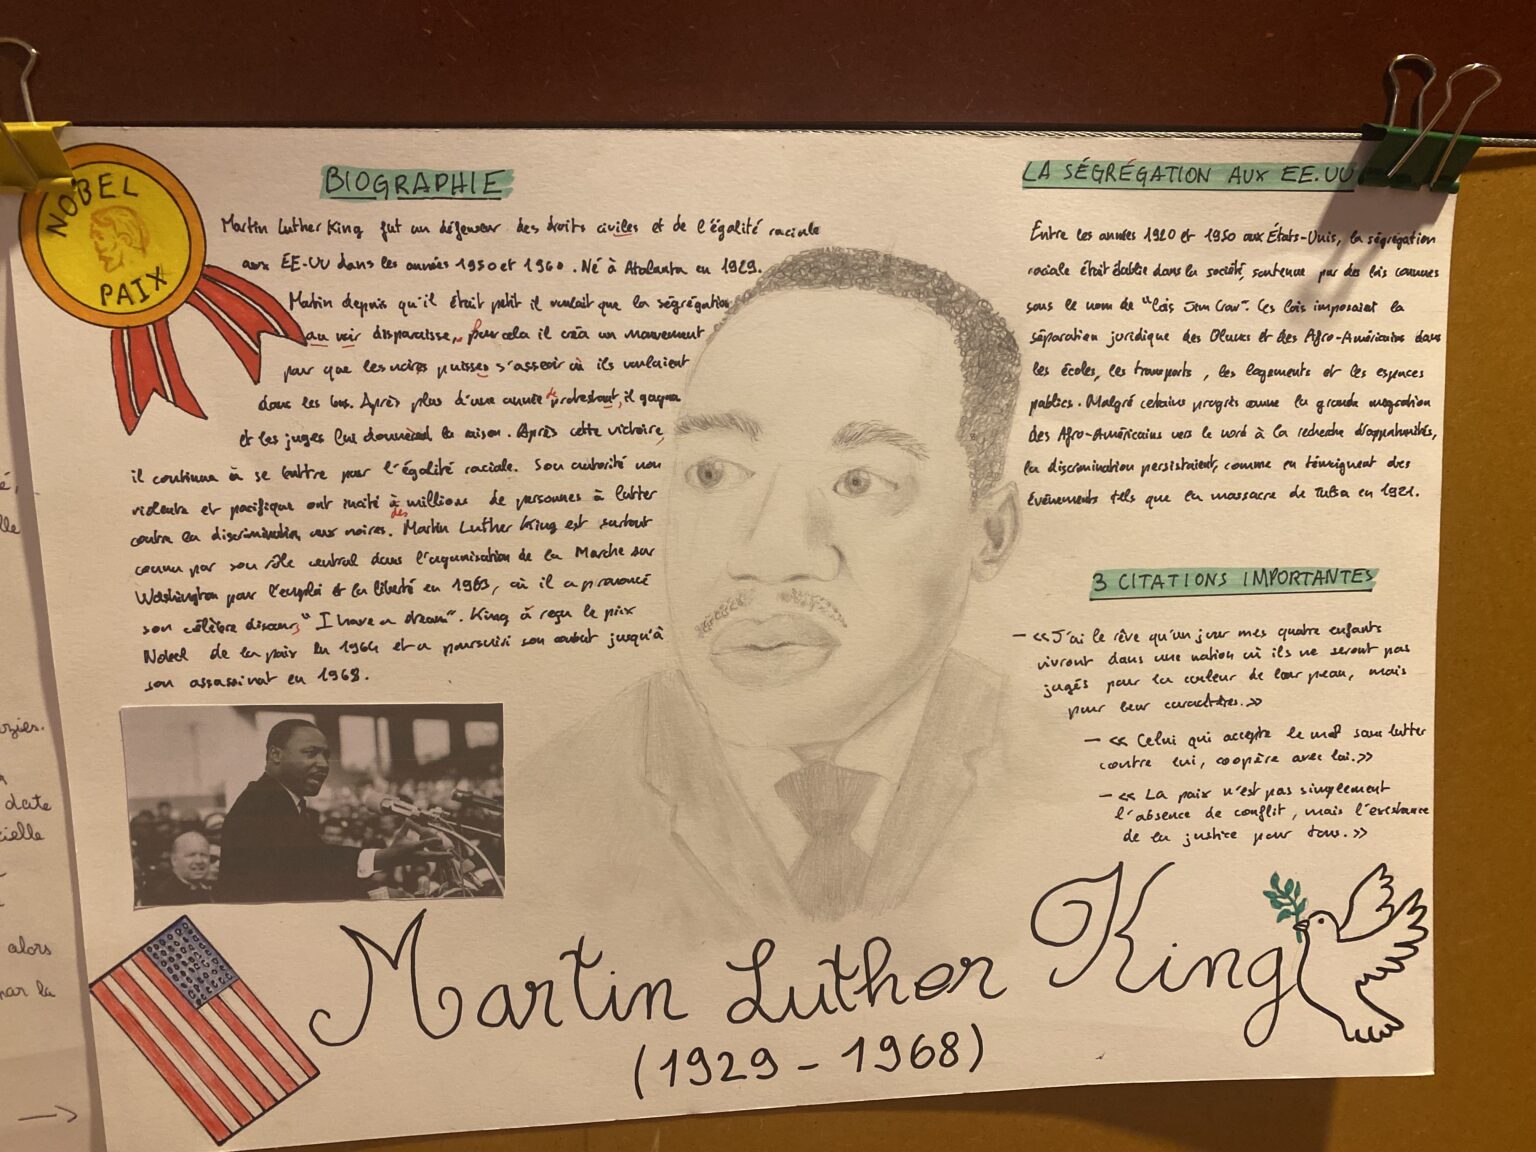 NOBEL
PAIX
BIOGRAPHIE
Martin Luther King fut un défenseur des droits civiles et de l'égalité raciale
aux EE-UU dans les années 1950 et 1960. Né à Atalanta en 1929.
Martin depuis qu'il était petit il voulait que la ségrégation
au voir disparaisse, pour cela il créa un mouvement
pour que les noires puisses s'asseoir où ils voulaient
dans les bus. Après plus d'une année de protestant, il gagna
et les juges lui donnèrent la raison. Après cette victoire,
il continua à se battre pour l'égalité raciale. Son autorité non
violente et pacifique ont incité à des millions de personnes à lutter
contre la discrimination aux noires. Martin Luther King est surtout
connu par son rôle central dans l'organisation de la Marche sur
Washington pour l'emploi et la liberté en 1963, où il a prononcé
son célèbre discours, "I have a dream". King à reçu le prix
Nobel de la paix en 1964 et a poursuivi son combat jusqu'à
son assassinat en 1968.
LA SÉGRÉGATION AUX EE.UU
Entre les années 1920 et 1950 aux États-Unis, la ségrégation
raciale était établie dans la société, soutenue par des lois connues
sous le nom de "lois Jim Crow". Ces lois imposaient la
séparation juridique des Blancs et des Afro-Américains dans
les écoles, les transports, les logements et les espaces
publics. Malgré certains progrès comme la grande migration
des Afro-Américains vers le nord à la recherche d'opportunités,
la discrimination persistaient, comme en témoignent des
événements tels que la massacre de Tulsa en 1921.
3 CITATIONS IMPORTANTES
— « J'ai le rêve qu'un jour mes quatre enfants
vivront dans une nation où ils ne seront pas
jugés pour la couleur de leur peau, mais
pour leur caractères. »
— « Celui qui accepte le mal sans lutter
contre lui, coopère avec lui. »
— « La paix n'est pas simplement
l'absence de conflit, mais l'existance
de la justice pour tous. »
Martin Luther King
(1929 - 1968)
date
alors